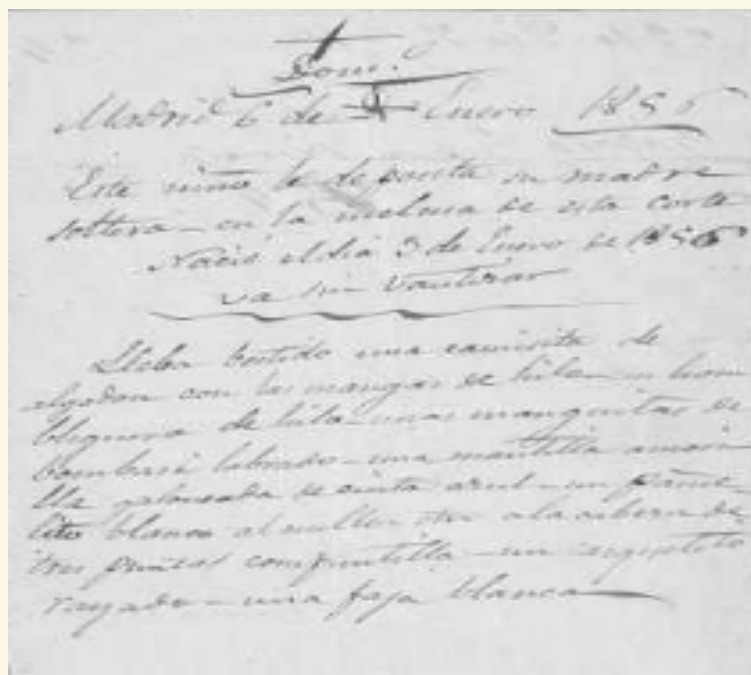 Dom.º
Madrid 6 de Enero 1856
Este niño lo deposita su madre
soltera - en la inclusa de esta corte
Nació el dia 3 de Enero de 1856
va sin Vautizar
Lleba bestido una camisita de
algodon con las mangas de hilo - un hom
bliguero de hilo - unas manguitas de
bombasi labrado - una mantilla amari
lla galoneada de cinta azul - un pañue
lito blanco al cuello otro a la cabeza de
tres puntas con puntilla - un
rayado - una faja blanca